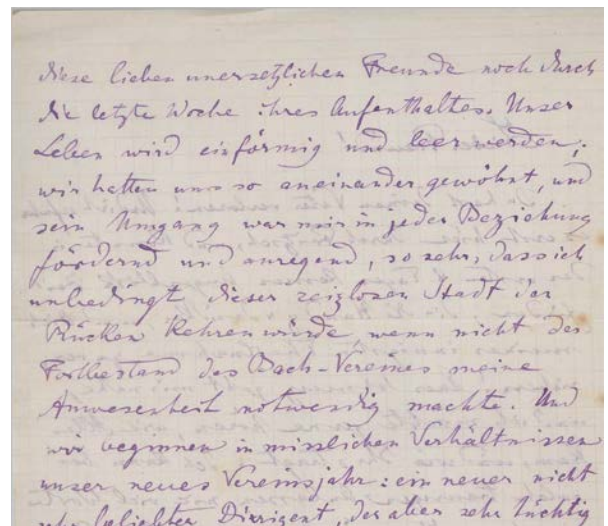 diese lieben unersetzlichen Freunde noch durch
die letzte Woche ihres Aufenthaltes. Unser
Leben wird einförmig und leer werden;
wir hatten uns so aneinander gewöhnt, und
sein Umgang war mir in jeder Beziehung
fördernd und anregend, so sehr, dass ich
unbedingt dieser reizlosen Stadt den
Rücken kehren würde wenn nicht der
Fortbestand des Bach-Vereines meine
Anwesenheit notwendig machte. Und
wir beginnen in misslichen Verhältnissen
unser neues Vereinsjahr: ein neuer nicht
sehr beliebter Dirigent, der aber sehr tüchtig